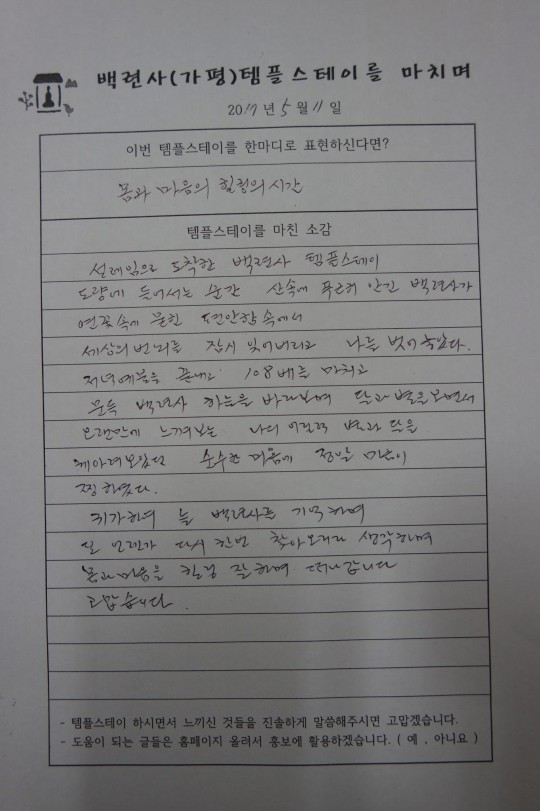 백련사(가평)템플스테이를 마치며
2017년 5월 11일
이번 템플스테이를 한마디로 표현하신다면?
몸과 마음의 힐링의 시간
템플스테이를 마친 소감
설레임으로 도착한 백련사 템플스테이
도량에 들어서는 순간 산속에 푸근히 안긴 백련사가
연꽃속에 묻힌 편안함 속에서
세상의 번뇌를 잠시 잊어버리고 나를 벗어 놓았다.
저녁예불을 끝내고 108배를 마치고
문득 백련사 하늘을 바라보며 달과 별을 보면서
오랜만에 느껴보는 나의 어릴적 별과 달을
헤아려 보았던 순수한 마음에 정말 마음이
찡하였다.
귀가하여 늘 백련사를 기억하며
또 언젠가 다시 한번 찾아오리라 생각하며
몸과 마음을 힐링 잘하며 떠나갑니다
고맙습니다.
- 템플스테이 하시면서 느끼신 것들을 진솔하게 말씀해주시면 고맙겠습니다.
- 도움이 되는 글들은 홈페이지 올려서 홍보에 활용하겠습니다. ( 예 , 아니요 )